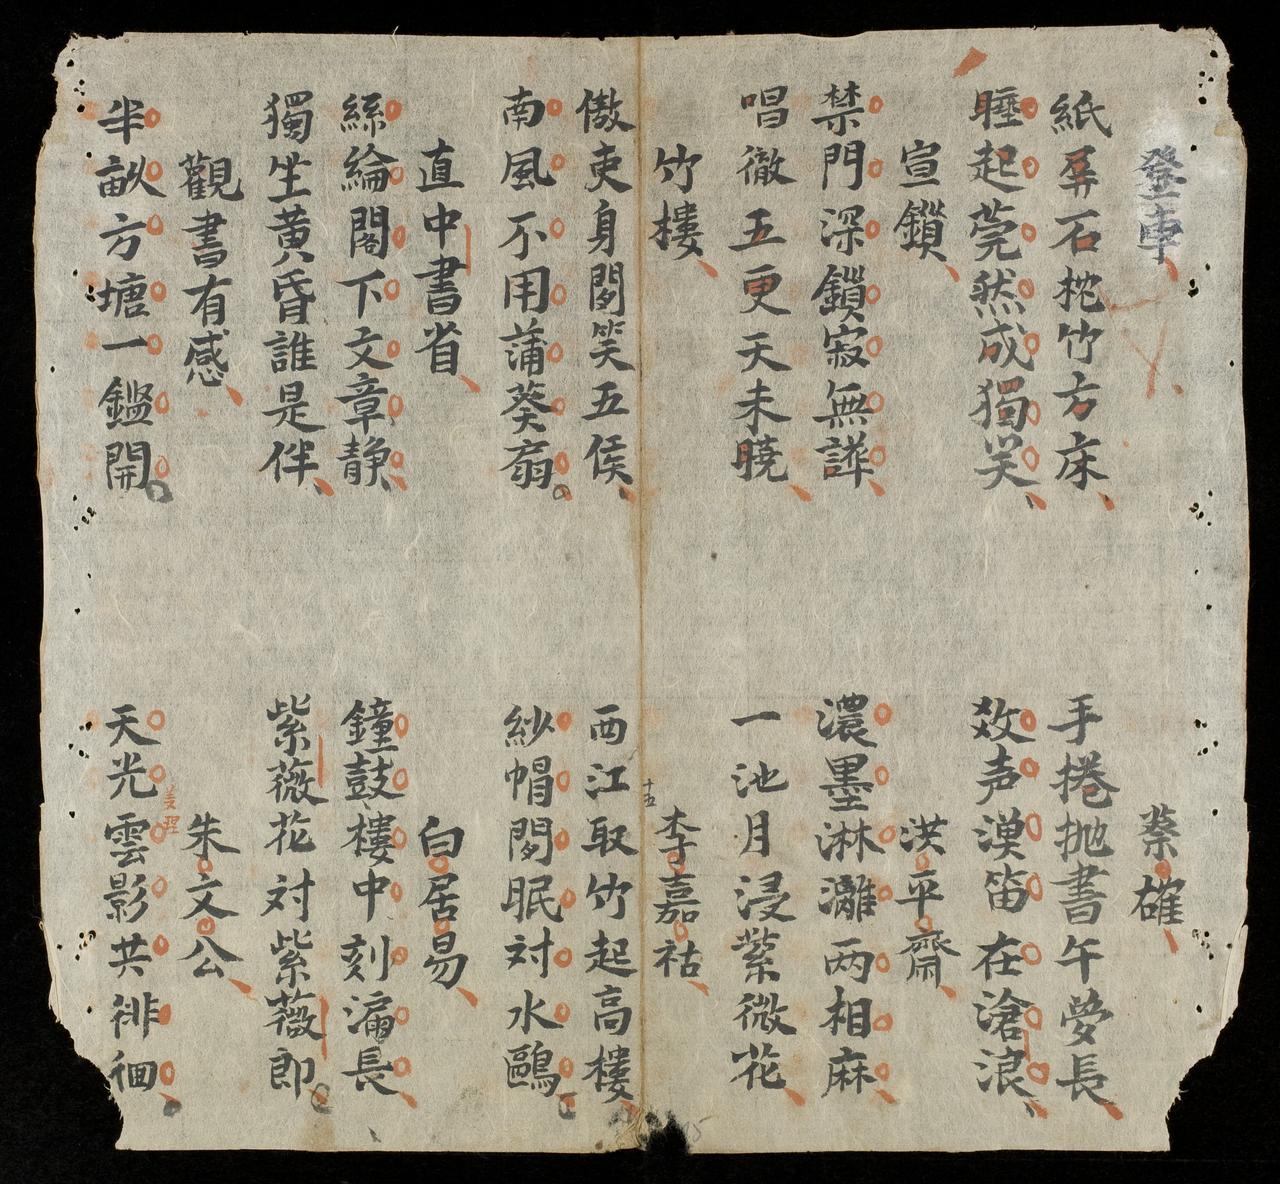 登車
蔡確
紙屏石枕竹方床
手捲抛書午夢長
睡起莞然成獨笑
效声漠笛在滄浪
宣鎖
洪平齋
禁門深鎖寂無譁
濃墨淋灕两相麻
唱徹五更天未曉
一池月浸紫微花
竹樓
十五
李嘉祜
傲吏身閑笑五侯
西江取竹起高樓
南風不用蒲葵扇
紗帽閑眠対水鷗
直中書省
白居易
絲綸閣下文章静
鐘鼓樓中刻漏長
獨坐黄昏誰是伴
紫薇花対紫薇郎
觀書有感
朱文公
半畝方塘一鑑開
天光雲影共徘徊